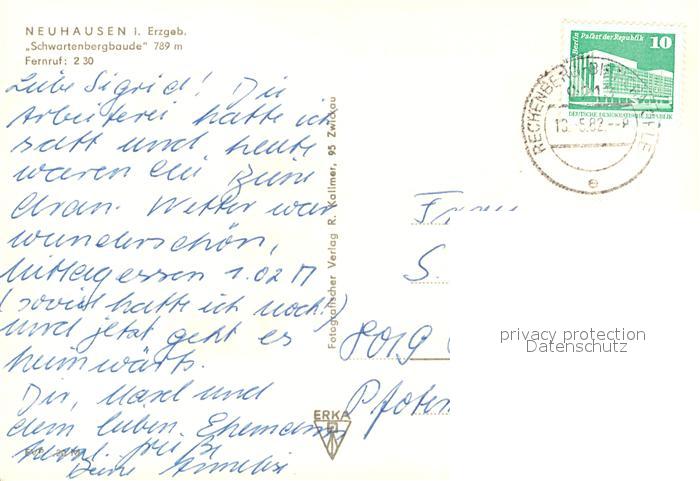 NEUHAUSEN i. Erzgeb.
„Schwartenbergbaude" 789 m
Fernruf: 2 30
Liebe Sigrid! Die
Arbeiterei hatte ich
satt und heute
waren die
dran. Wetter war
wunderschön,
Mittagessen 1.02 M
(soviel hatte ich noch!)
und jetzt geht es
heimwärts.
Dir, und
dem lieben Ehemann
herzl. Grüße
Deine Annelise
Fotografischer Verlag R. Kallmer, 95 Zwickau
ERKA
Berlin Palast der Republik
10
DEUTSCHE DEMOKRATISCHE REPUBLIK
RECHENBERG-BIENENMÜHLE
5.82
e
Frau
S.
8019
Pfoten
privacy protection
Datenschutz